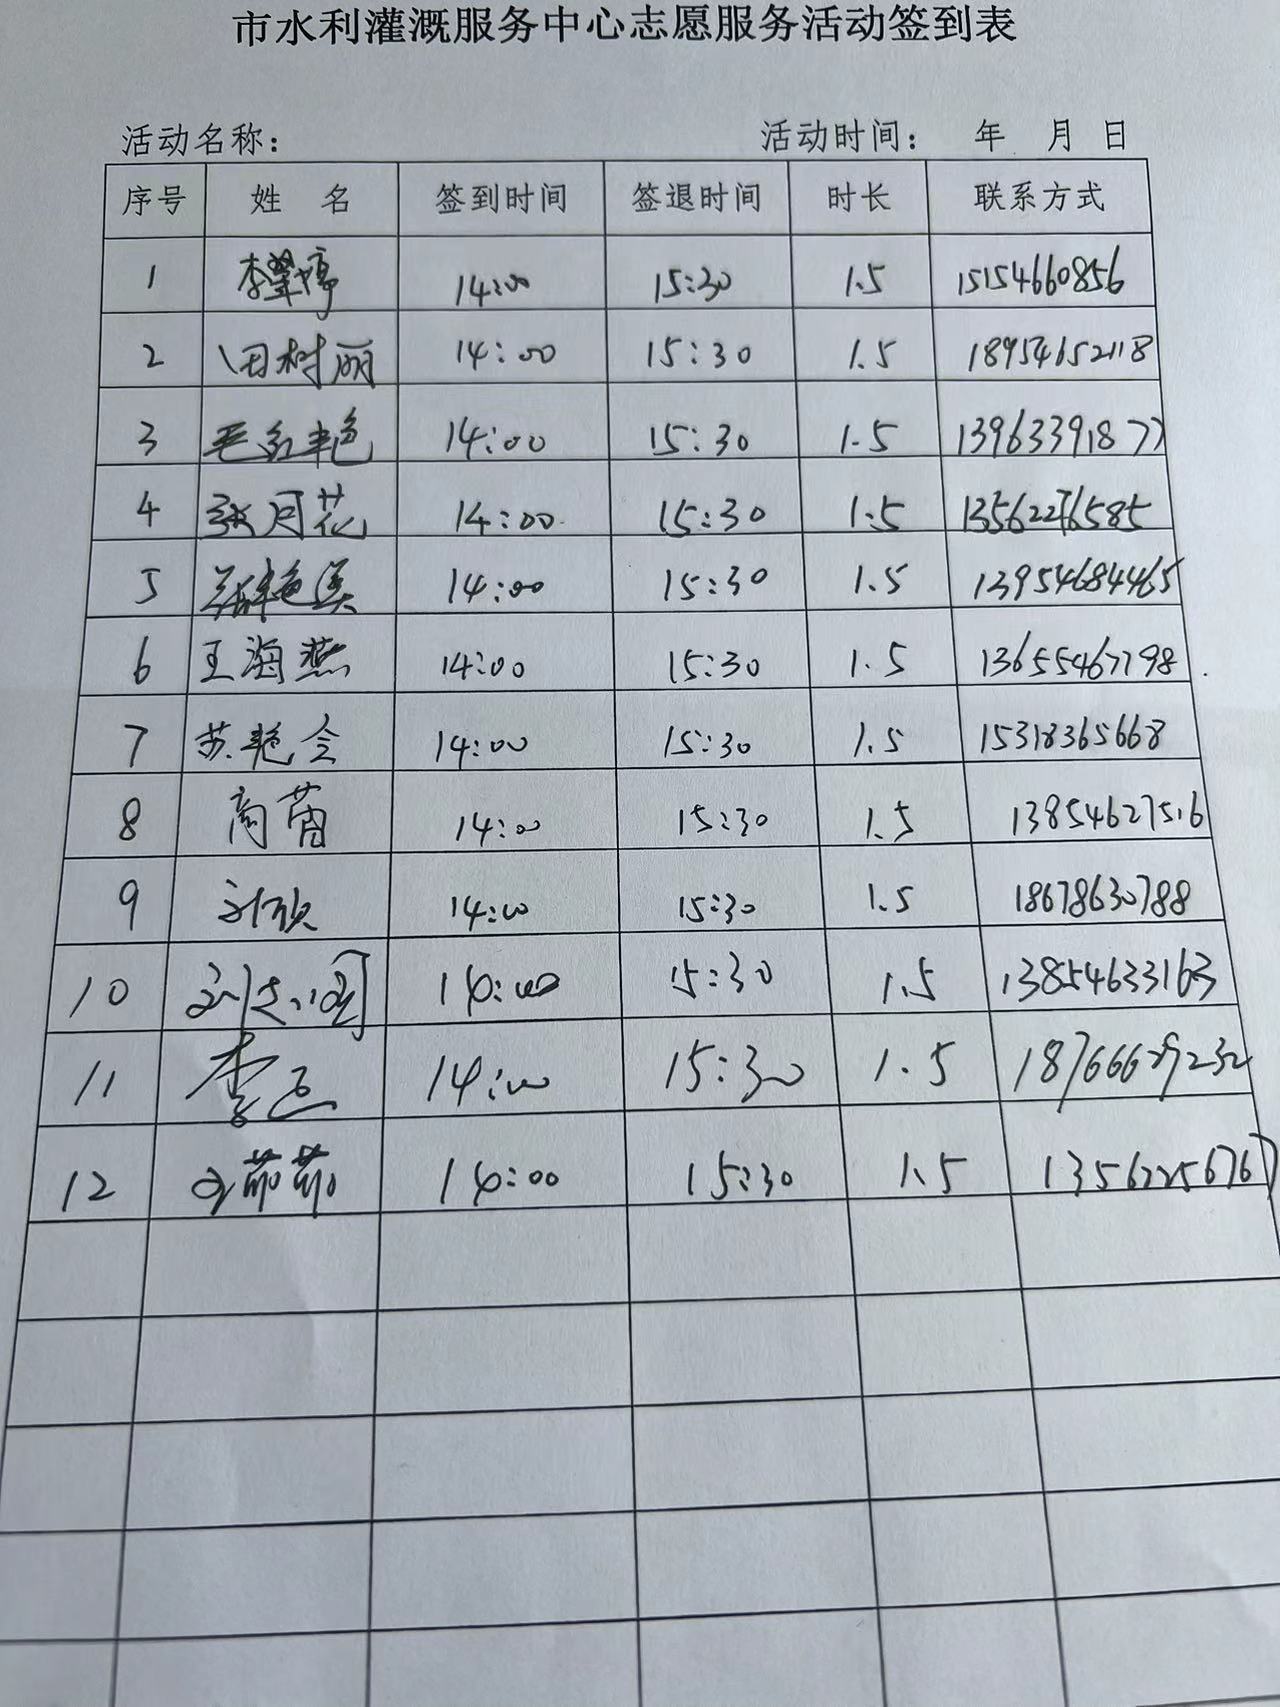 市水利灌溉服务中心志愿服务活动签到表
活动名称： 活动时间： 年 月 日
序号 姓 名 签到时间 签退时间 时长 联系方式
1 李翠婷 14:00 15:30 1.5 15154660856
2 田树丽 14:00 15:30 1.5 18954652118
3 毛红艳 14:00 15:30 1.5 13963391877
4 张月花 14:00 15:30 1.5 13562276585
5 14:00 15:30 1.5 13954684465
6 王海燕 14:00 15:30 1.5 13655467798
7 苏艳会 14:00 15:30 1.5 15318365668
8 商蕾 14:00 15:30 1.5 13854627516
9 刘欣 14:00 15:30 1.5 18678630788
10 14:00 15:30 1.5 13854633163
11 14:00 15:30 1.5 18766629232
12 14:00 15:30 1.5 13562256767